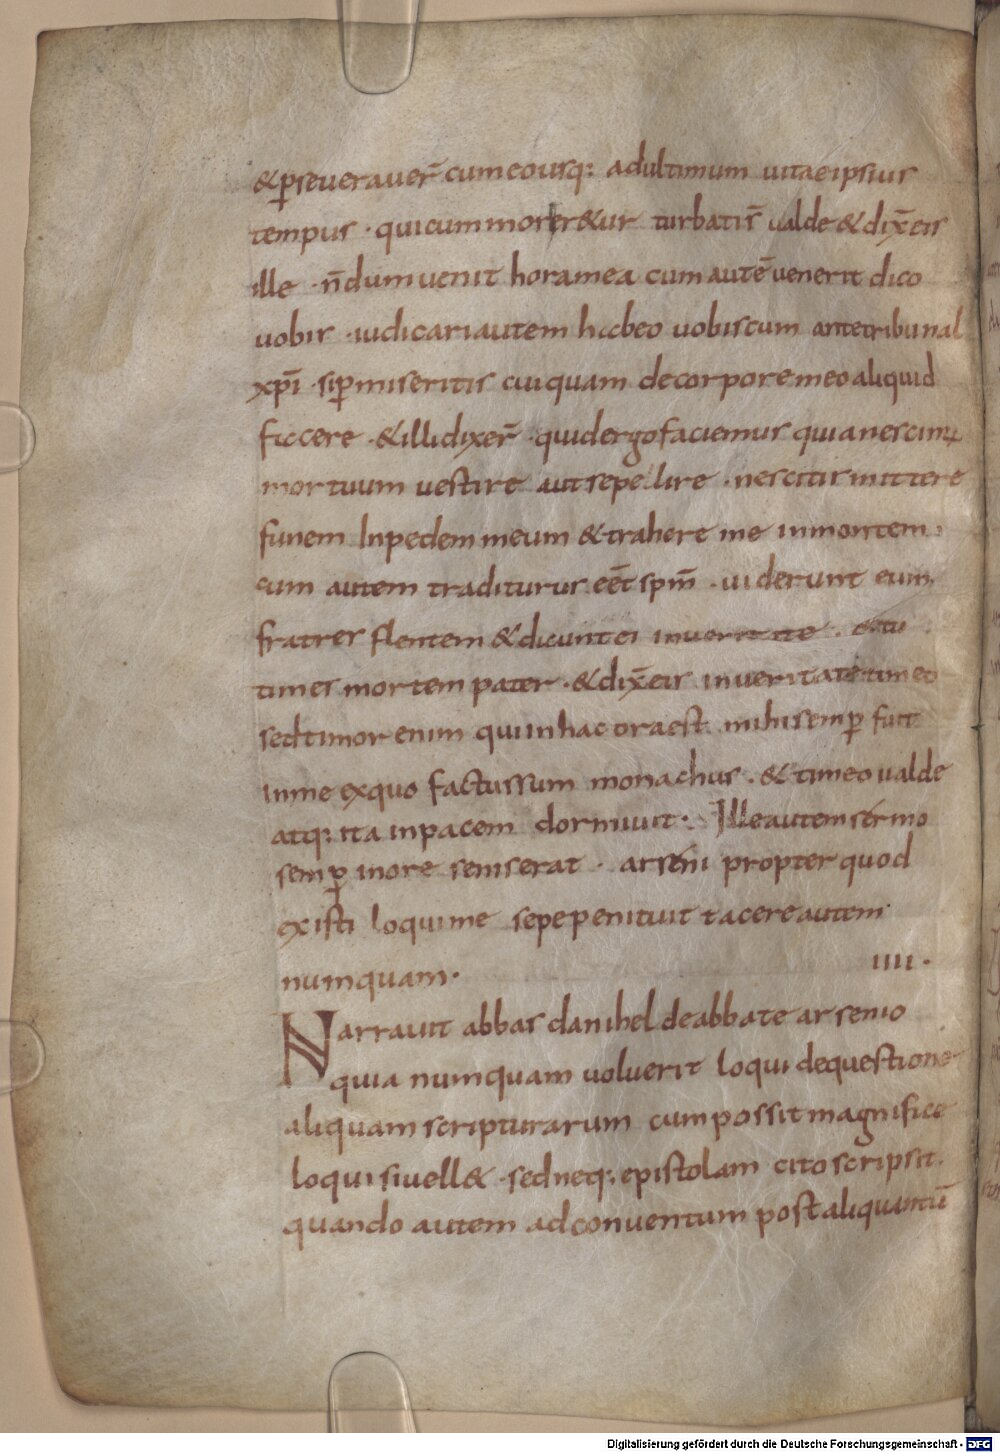 &p̄severauer̄ cum eo usq: ad ultimum uitae ipsius
tempus · qui cum morer&ur turbatis̄ ualde & dix̄ eis
ille · n̄dum uenit hora mea cum autē uenerit dico
uobis · iudicari autem habeo uobiscum ante tribunal
xpī · si p̄miseritis cuiquam de corpore meo aliquid
faccere · & illi dixer̄ · quid ergo faciemus quia nescim;
mortuum uestire aut sepellire · nescitis mittere
funem In pedem meum & trahere me in montem ·
cum autem traditurus eēt spm̄ · uiderunt eum
fratres flentem & dicunt ei in ueritate · et tu
times mortem pater · & dix̄ eis in ueritate timeo
sed timor enim qui in hac ora est mihi semp̄ fuit
in me ex quo factus sum monachus · & timeo ualde
atq: ita in pacem dormiuit · Ille autem sermo
semp̄ in ore semserat · arseni propter quod
existi loqui me sepe penituit tacere autem
numquam · IIII ·
Narrauit abbas danihel de abbate arsenio
quia numquam voluerit loqui de questione
aliquam scripturarum cum possit magnifice
loqui si uell& · sed neq: epistolam cito scripsit.
quando autem ad conuentum post aliquantū
Digitalisierung gefördert durch die Deutsche Forschungsgemeinschaft - DFG